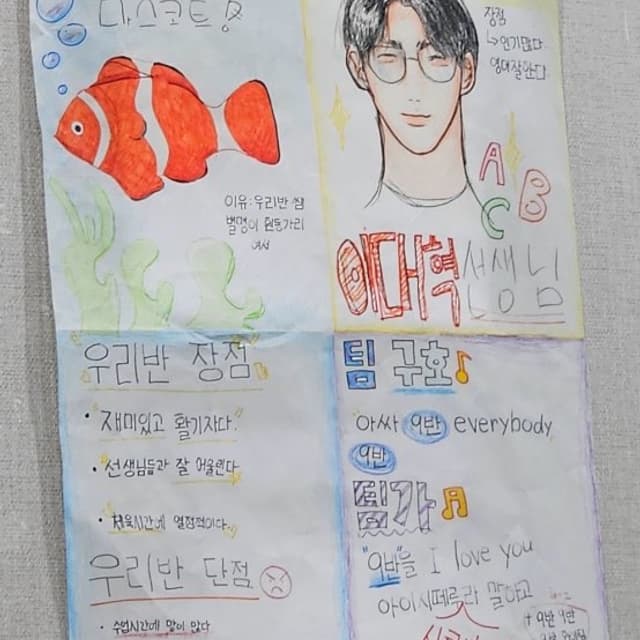 마스코트
이유: 우리반 쌤
별명이 흰동가리
여서
장점
↳인기많다
영어잘한다
A B C
이대혁선생님
우리반 장점
• 재미있고 활기차다.
• 선생님들과 잘 어울린다
• 체육시간에 열정적이다.
우리반 단점
• 수업시간에 말이 많다
팀 구호
아싸 9반 everybody
9반
팀가
"9반"을 I love you
아이시떼루라 말하고
+ 9반 9반